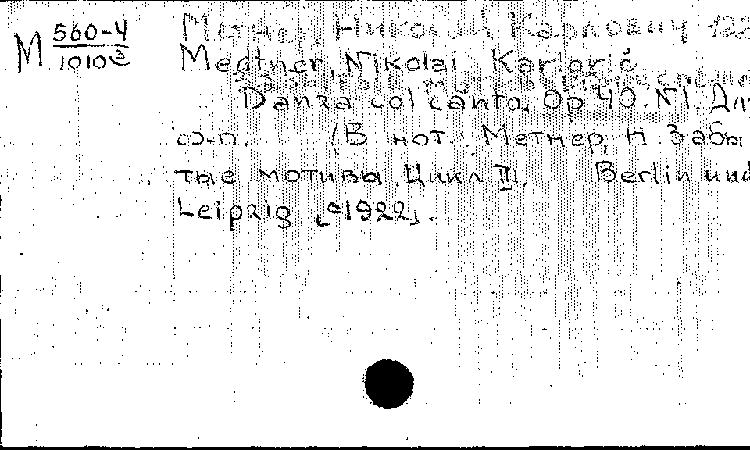 М 560-4
10103
Метнер, Николай Карлович 122
Medtner, Nikolai Karlovič
Danza col canto. Op 40. N1. Для
ф-п. (В нот. Метнер, Н. Забы
тые мотивы. Цикл II. Berlin und
Leipzig [c1922].